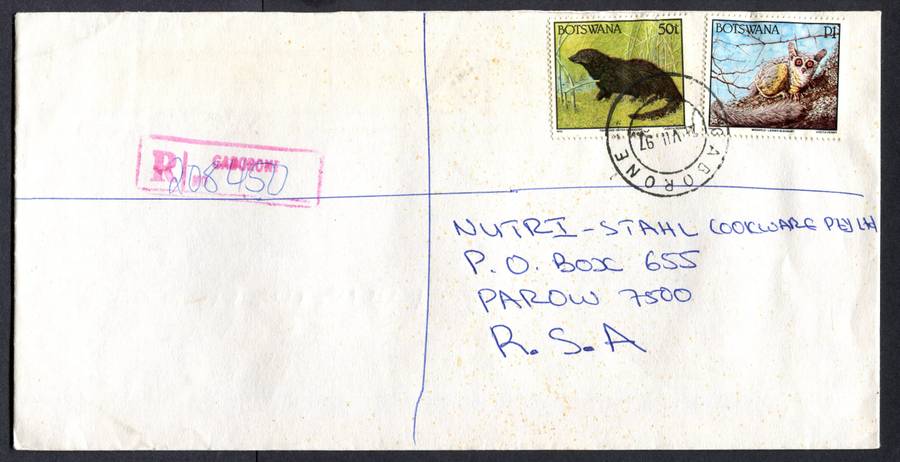 BOTSWANA 50t
BOTSWANA P1
GABORONE
VII. 97
R GABORONE
208450
NUTRI-STAHL COOKWARE PTY Ltd
P.O. BOX 655
PAROW 7500
R.S.A